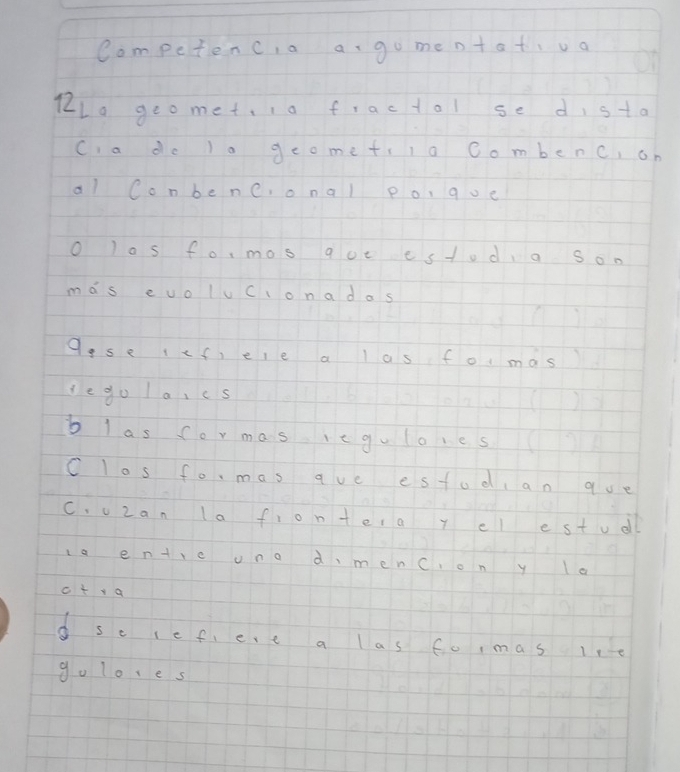 Competencia argumentativa
12 La geometria fractal se dista
cia de la geometria Combencion
al Conbencional porque
o las formas que estudia son
más evolucionadas
a se refiere a las formas
regulares
b las formas regulares
C las formas que estudian que
cruzan la frontera y el estudi
ia entre una dimencion y la
otra
d se refiere a las formas irre
gulares